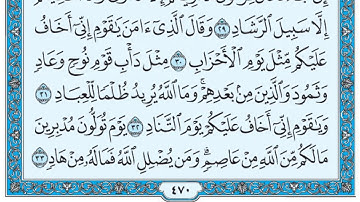 إِلَّا سَبِيلَ ٱلرَّشَادِ ٢٩ وَقَالَ ٱلَّذِىٓ ءَامَنَ يَٰقَوْمِ إِنِّىٓ أَخَافُ
عَلَيْكُم مِّثْلَ يَوْمِ ٱلْأَحْزَابِ ٣٠ مِثْلَ دَأْبِ قَوْمِ نُوحٍ وَعَادٍ
وَثَمُودَ وَٱلَّذِينَ مِنۢ بَعْدِهِمْ ۚ وَمَا ٱللَّهُ يُرِيدُ ظُلْمًا لِّلْعِبَادِ ٣١
وَيَٰقَوْمِ إِنِّىٓ أَخَافُ عَلَيْكُمْ يَوْمَ ٱلتَّنَادِ ٣٢ يَوْمَ تُوَلُّونَ مُدْبِرِينَ
مَا لَكُم مِّنَ ٱللَّهِ مِنْ عَاصِمٍ ۗ وَمَن يُضْلِلِ ٱللَّهُ فَمَا لَهُۥ مِنْ هَادٍ ٣٣
٤٧٠